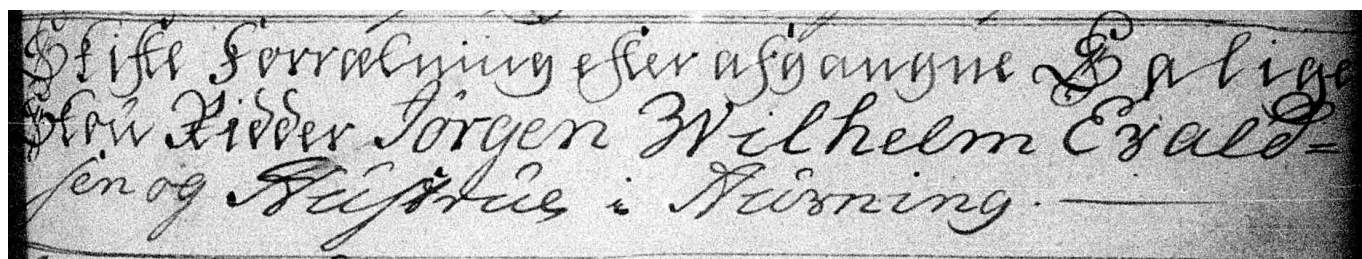 Skifte Forrætning efter afgangne Salige
Skou Ridder Jörgen Wilhelm Evald=
sen og Hustrue i Nürning.